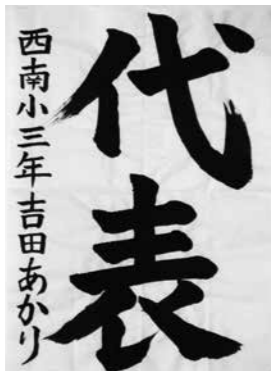 代表
西南小三年吉田あかり